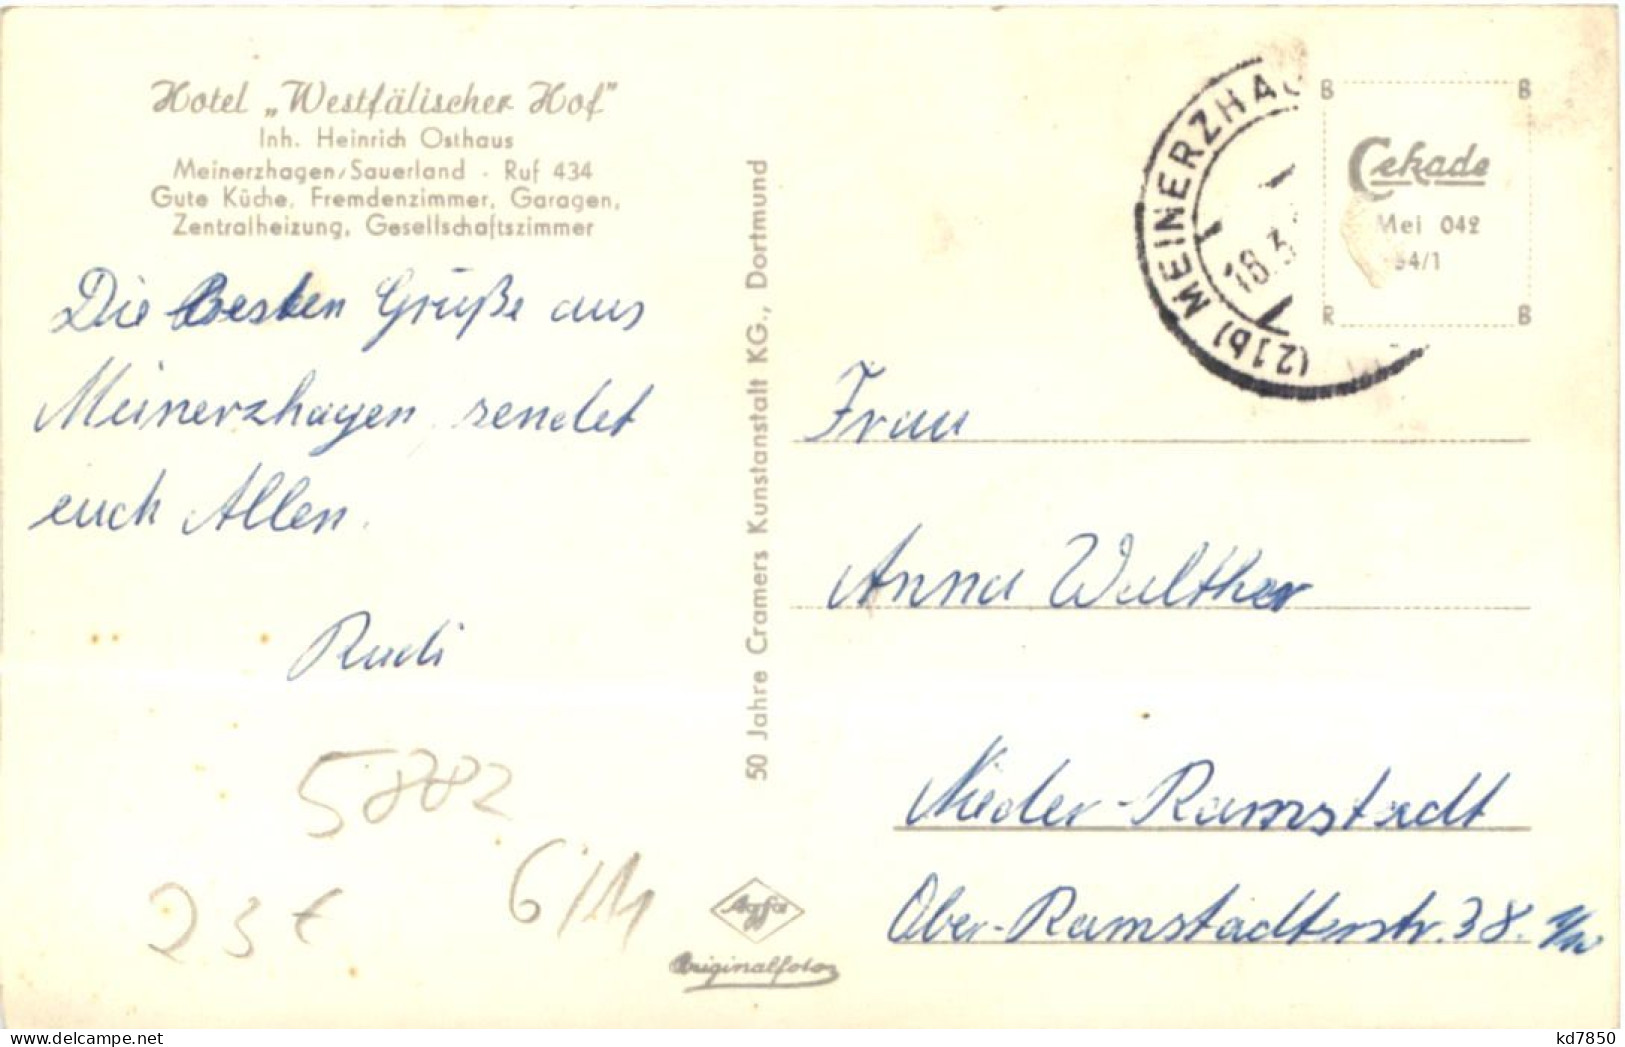 Hotel „Westfälischer Hof"
Inh. Heinrich Osthaus
Meinerzhagen/Sauerland · Ruf 434
Gute Küche, Fremdenzimmer, Garagen,
Zentralheizung, Gesellschaftszimmer
Die Besten Grüße aus
Meinerzhagen, sendet
euch Allen.
Rudi
5882
23 €
6/11
50 Jahre Cramers Kunstanstalt KG., Dortmund
Agfa
Originalfoto
(21b) MEINERZHAG
18.3.
B B
Cekade
Mei 042
54/1
R B
Frau
Anna Walther
Nieder-Ramstadt
Ober-Ramstädterstr. 38.
kd7850